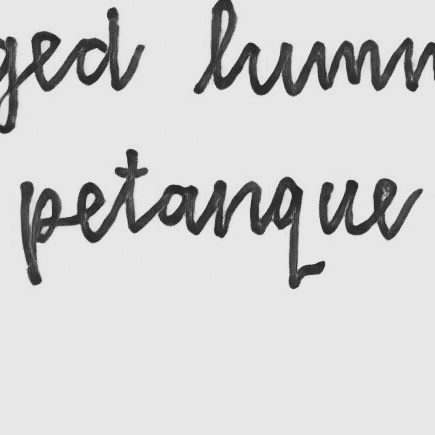 ged humm
petanque